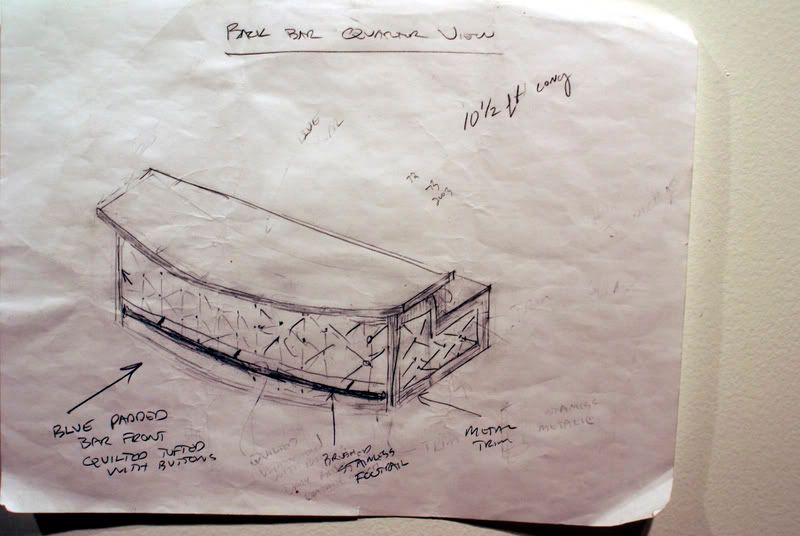 BACK BAR QUARTER VIEW
10 1/2 ft LONG
BLUE PADDED
BAR FRONT
QUILTED TUFTED
WITH BUTTONS
BRUSHED
STAINLESS
FOOTRAIL
METAL
TRIM
QUILTED
TRIM
STAINLESS
METALLIC